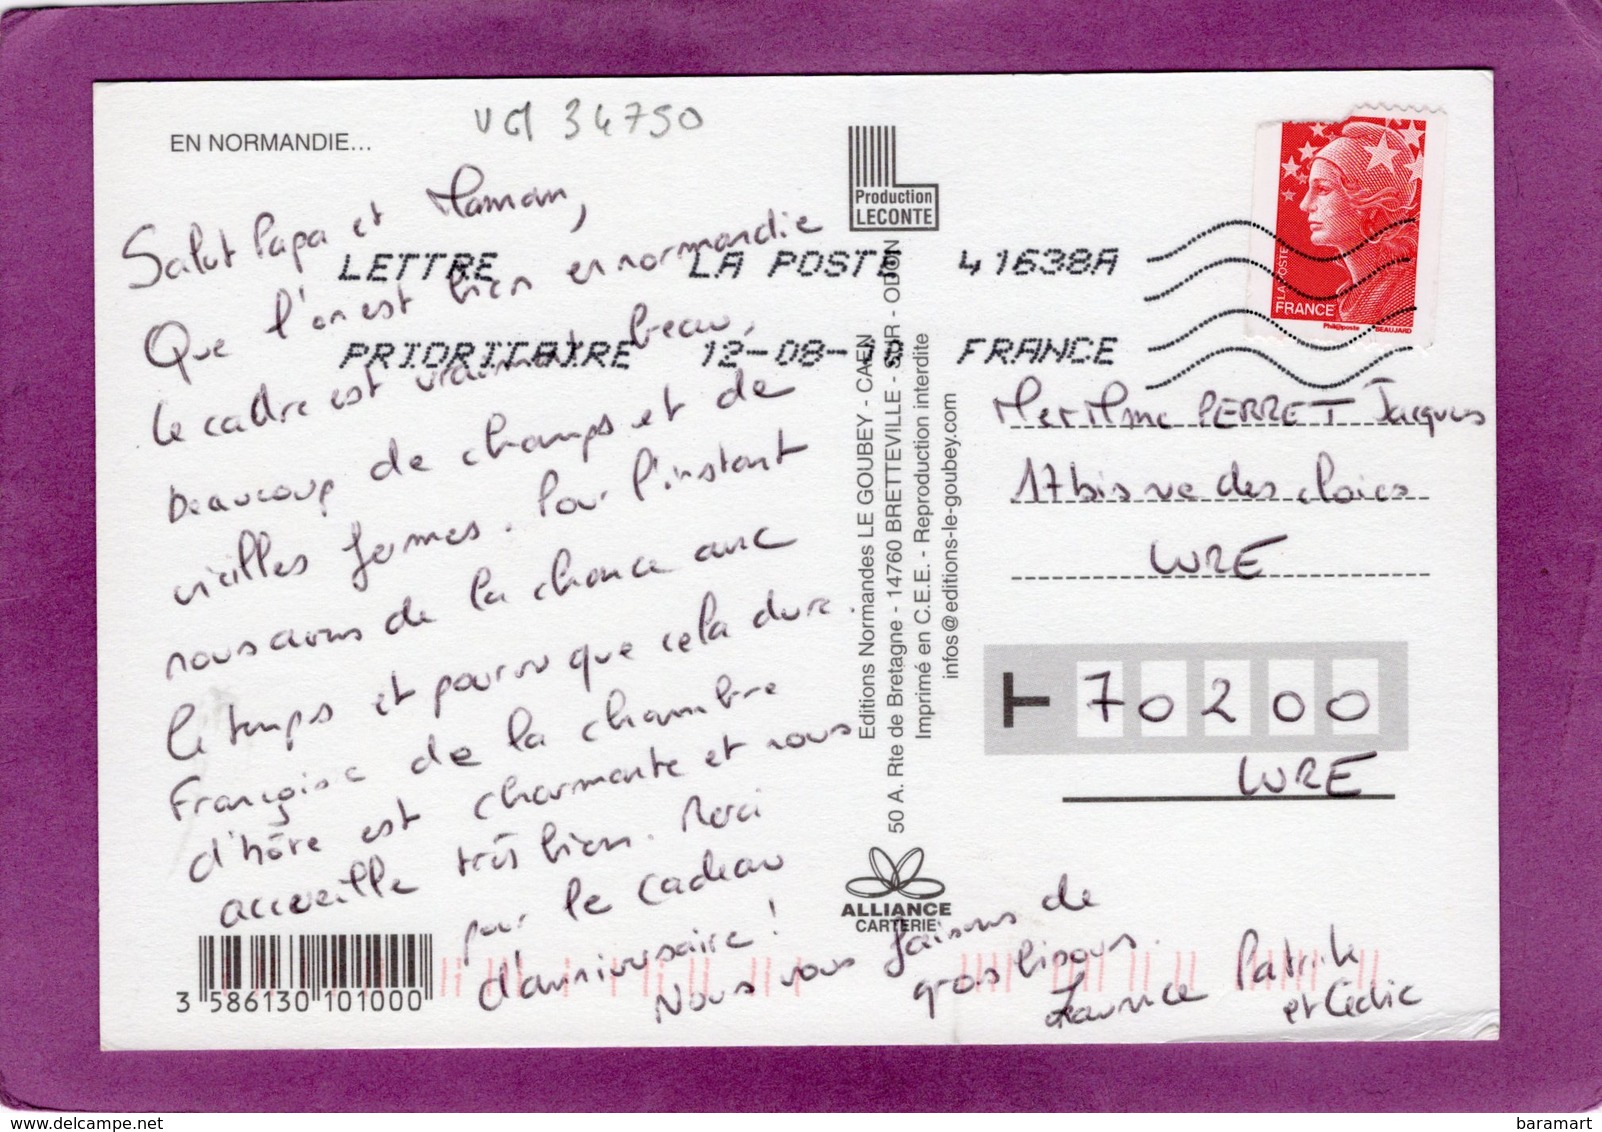 EN NORMANDIE...
VG1 34750
Salut Papa et Maman,
Que l'on est bien en normandie
le cadre est vraiment beau,
beaucoup de champs et de
vieilles fermes. Pour l'instant
nous avons de la chance avec
le temps et pourvu que cela dure.
Françoise de la chambre
d'hôte est charmante et nous
accueille très bien. Merci
pour le cadeau
d'anniversaire !
Nous vous faisons de
gros bisous.
Laurence Patrick
et Cédric
LETTRE LA POSTE 41638A
PRIORITAIRE 12-08-10 FRANCE
Production
LECONTE
Editions Normandes LE GOUBEY - CAEN
50 A. Rte de Bretagne - 14760 BRETTEVILLE - SUR - ODON
Imprimé en C.E.E. - Reproduction interdite
infos@editions-le-goubey.com
ALLIANCE
CARTERIE
LA POSTE
FRANCE
Phil@poste BEAUJARD
Mer Mme PERRET Jacques
17 bis rue des cloies
LURE
T 70200
LURE
3 586130 101000
www.delcampe.net
baramart